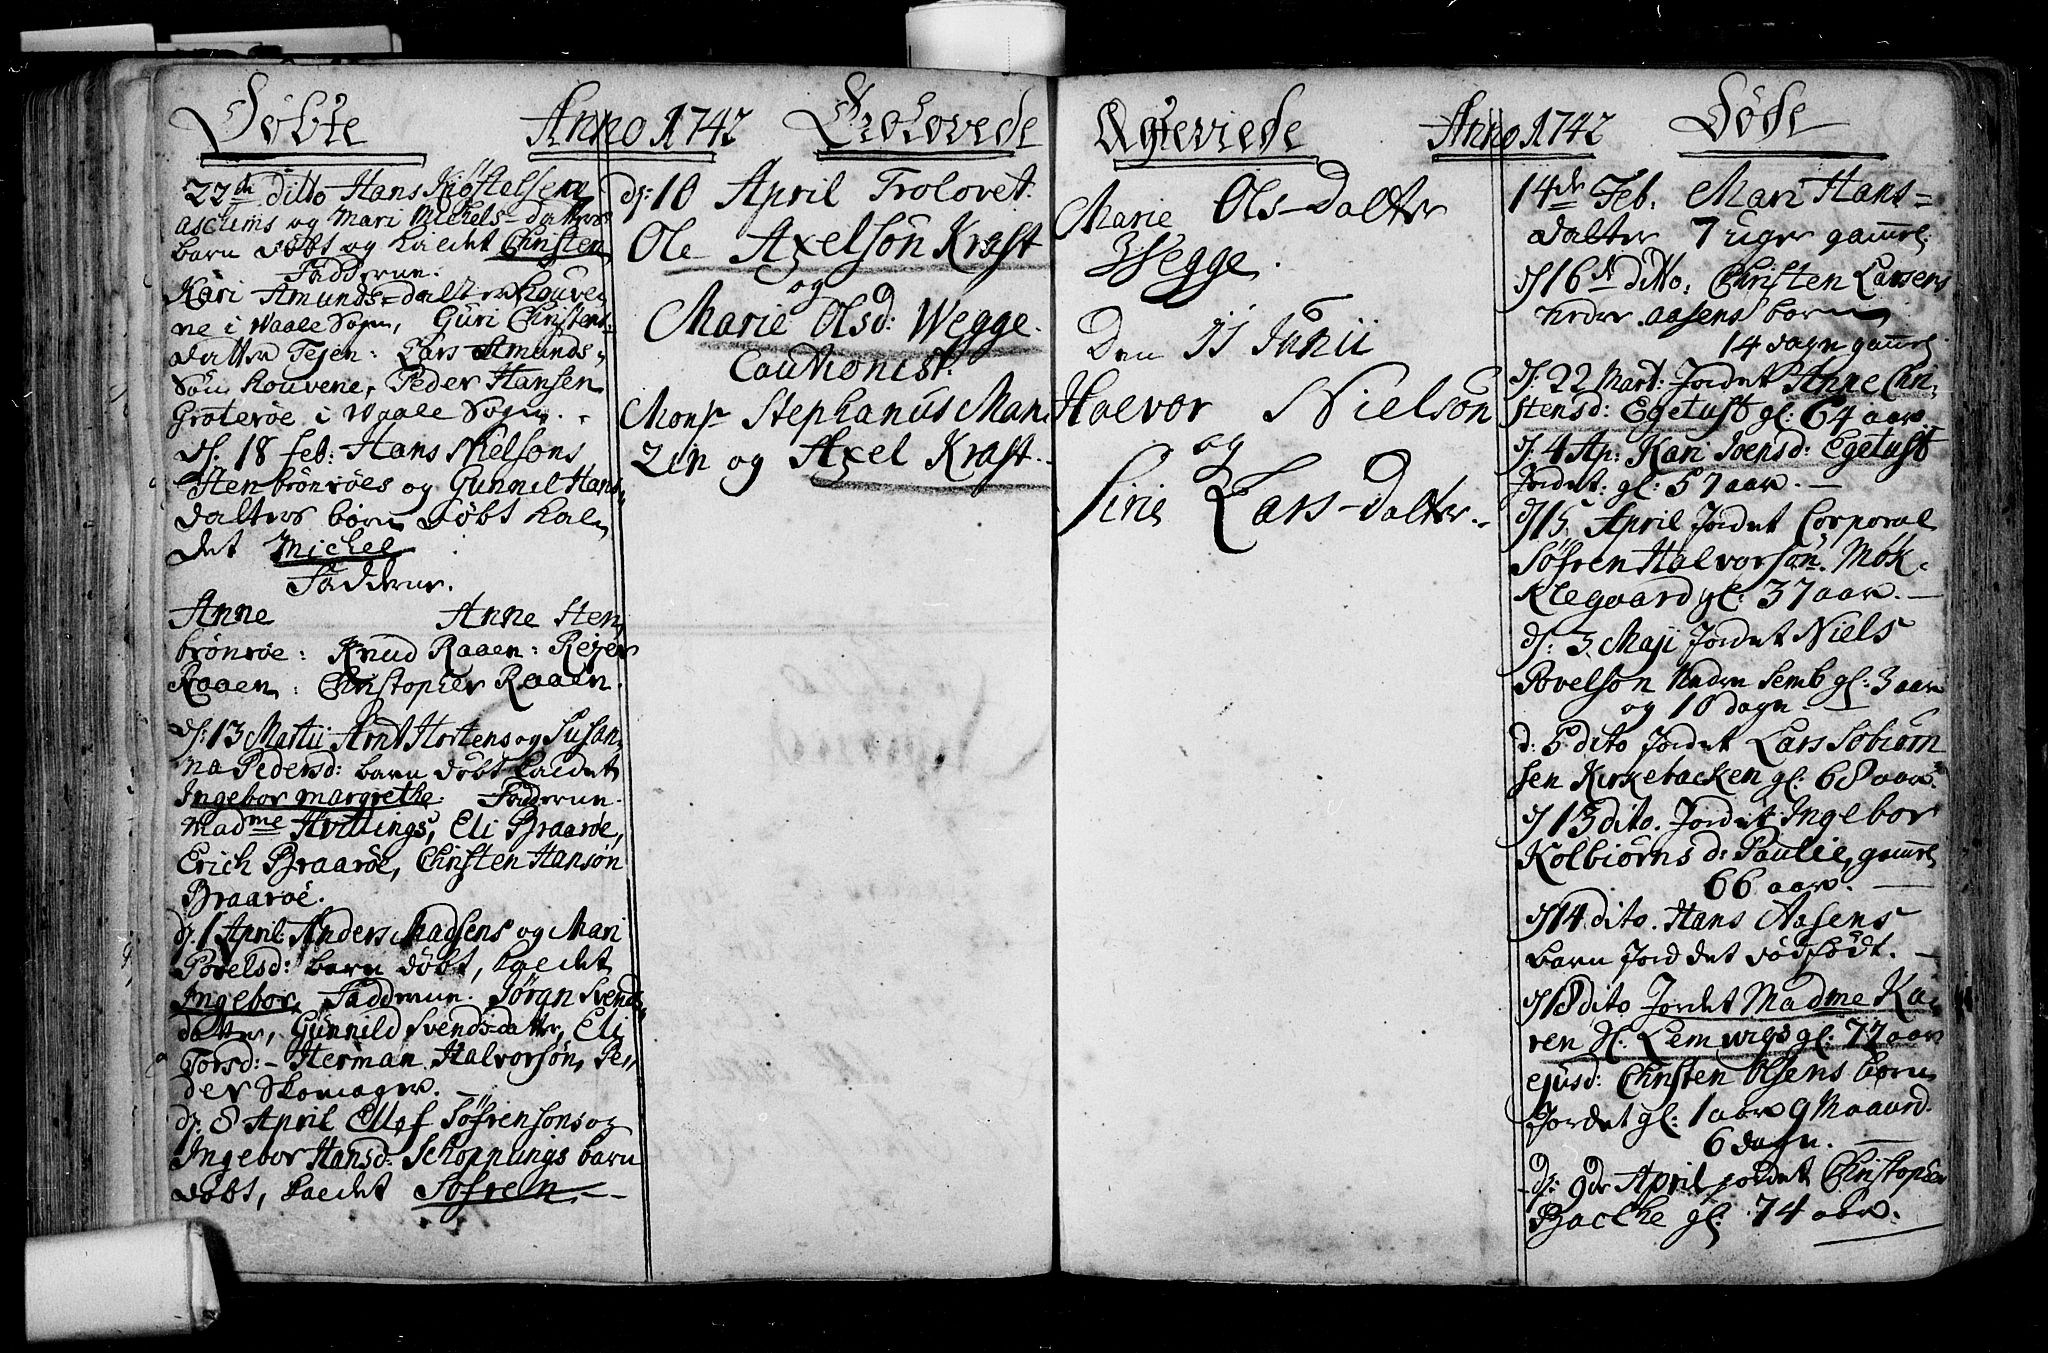 Døbte
22de ditto Hans Kiøstelsen
aschims og Mari Michels-datters
barn døbt og kaldet Christen
Faddrene.
Kari Amunds-datter Houve
ne i Waale Sogn, Guri Christens
datter Tejen: Lars Amunds
Søn houvene, Peder Hansen
Groterøe i Waale Sogn.
d. 18 feb: Hans Nielsons
Stenbrönrøes og Gunnil Hans
datters børn døbt kal
det Michel
Fadderne.
Anne Anne Sten
brønrøe: Knud Raaen: Rejer
Raaen: Christopher Raaen.
d: 13 Martii Arnt Hortens og Susan
na Pedersd: barn døbt kaldet
Ingebor margrethe. Fadderne.
Madme Hvidings, Eli Braarøe,
Erich Braarøe, Christen Hansøn
Braarøe.
d. 1 April Anders Madsens og Mari
Povelsd: barn døbt, kaldet
Ingebor, Fadderne. Jøran Svends
datter, Gunnild Svendsdatter, Eli
Torsd: Herman Halvorsøn, Pe
der Skomager.
d: 8 April Ellef Søfrensøns og
Ingebor Hansd: Schøpnings barn
døbt, kaldet Søfren.
Anno 1742 Trolovede
d: 10 April Trolovet.
Ole Axelsøn Kraft
og
Marie Olsd: Wegge.
Cautionist:
Monsr Stephanus Man
zin og Axel Kraft.
Ægteviede
Marie Ols-Datter
Wegge.
Den 11 Junii
Halvor Nielsøn
og
Siri Lars-Datter.
Anno 1742 Døde
14de Feb. Mari Hans=
datter 7 uger gaml.
d 16 ditto: Christen Larsens
neder aasens barn
14 dage gaml.
d: 22 Mart: Jordet Anne Chri
stensd: Egetuft gl: 64 aar
d: 4 Ap: Kari Svensd: Egetuft
Jordet. gl: 57 aar.
d 15 April Jordet Corporal
Søfren Halvorsøn Møk
klegaard gl: 37 aar.
d: 3 Maji Jordet Niels
Povelsøn Neden Semb gl: 3 aar
og 10 dage.
d: 5 dito Jordet Lars Tobiorn
sen Kirkebacken gl: 68 aar.
d 13 dito. Jordet Ingebor
Kolbiørns d: Paulie, gaml
66 aar.
d 14 dito. Hans Aasens
barn Jordet dødfødt.
d 18 dito Jordet Madme Ka
ren Sl. Lemvigs gl: 77 aar
ejusd: Christen Olsens barn
Jordet gl: 1 aar 9 Maaned.
6 dage.
d: 9de April jordet Christopher
Bache gl: 74 aar.